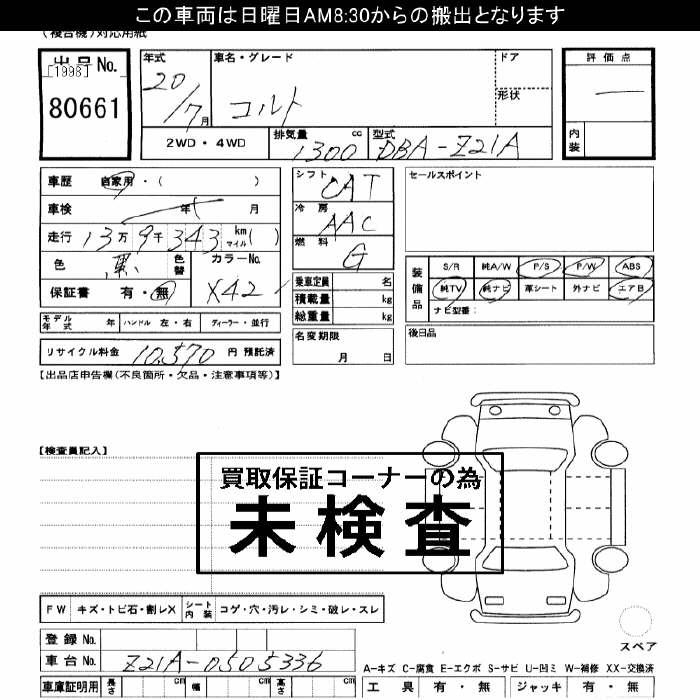 この車両は日曜日AM8:30からの搬出となります
(複合機)対応用紙
出品No.
[1998]
80661
年式
20/7月
車名・グレード
コルト
ドア
形状
評価点
—
内装
2WD・4WD
排気量 cc
1300
型式
DBA-Z21A
車歴 自家用・( )
車検 年 月
走行 13万9千343 km マイル( )
色 黒 色替
カラーNo.
X42
保証書 有・無
シフト
CAT
冷房
AAC
燃料
G
乗車定員 名
積載量 kg
総重量 kg
セールスポイント
装備品
S/R 純A/W P/S P/W ABS
純TV 純ナビ 革シート 外ナビ エアB
ナビ型番:
モデル年式 年 ハンドル 左・右 ディーラー・並行
名変期限
月 日
後日品
リサイクル料金 10,570 円 預託済
【出品店申告欄(不良箇所・欠品・注意事項等)】
【検査員記入】
買取保証コーナーの為
未検査
FW キズ・トビ石・割レX シート内装 コゲ・穴・汚レ・シミ・破レ・スレ
登録No.
車台No. Z21A-0505336
スペア
A-キズ C-腐食 E-エクボ S-サビ U-凹ミ W-補修 XX-交換済
車庫証明用 長さ cm 幅 cm 高さ cm
工具 有・無 ジャッキ 有・無